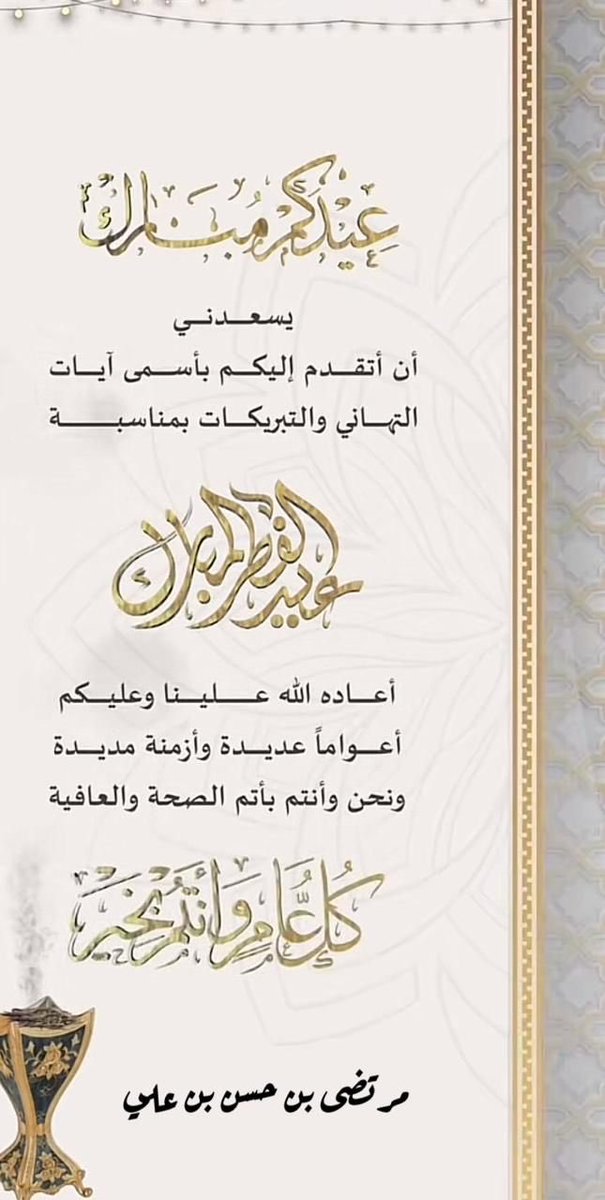 عِيْدُكُمْ مُبَارَك
يسعدني
أن أتقدم إليكم بأسمى آيات
التهاني والتبريكات بمناسبة
عيد الفطر المبارك
أعاده الله علينا وعليكم
أعواماً عديدة وأزمنة مديدة
ونحن وأنتم بأتم الصحة والعافية
كُل عَام وَأَنْتُمْ بِخَيْر
مرتضى بن حسن بن علي